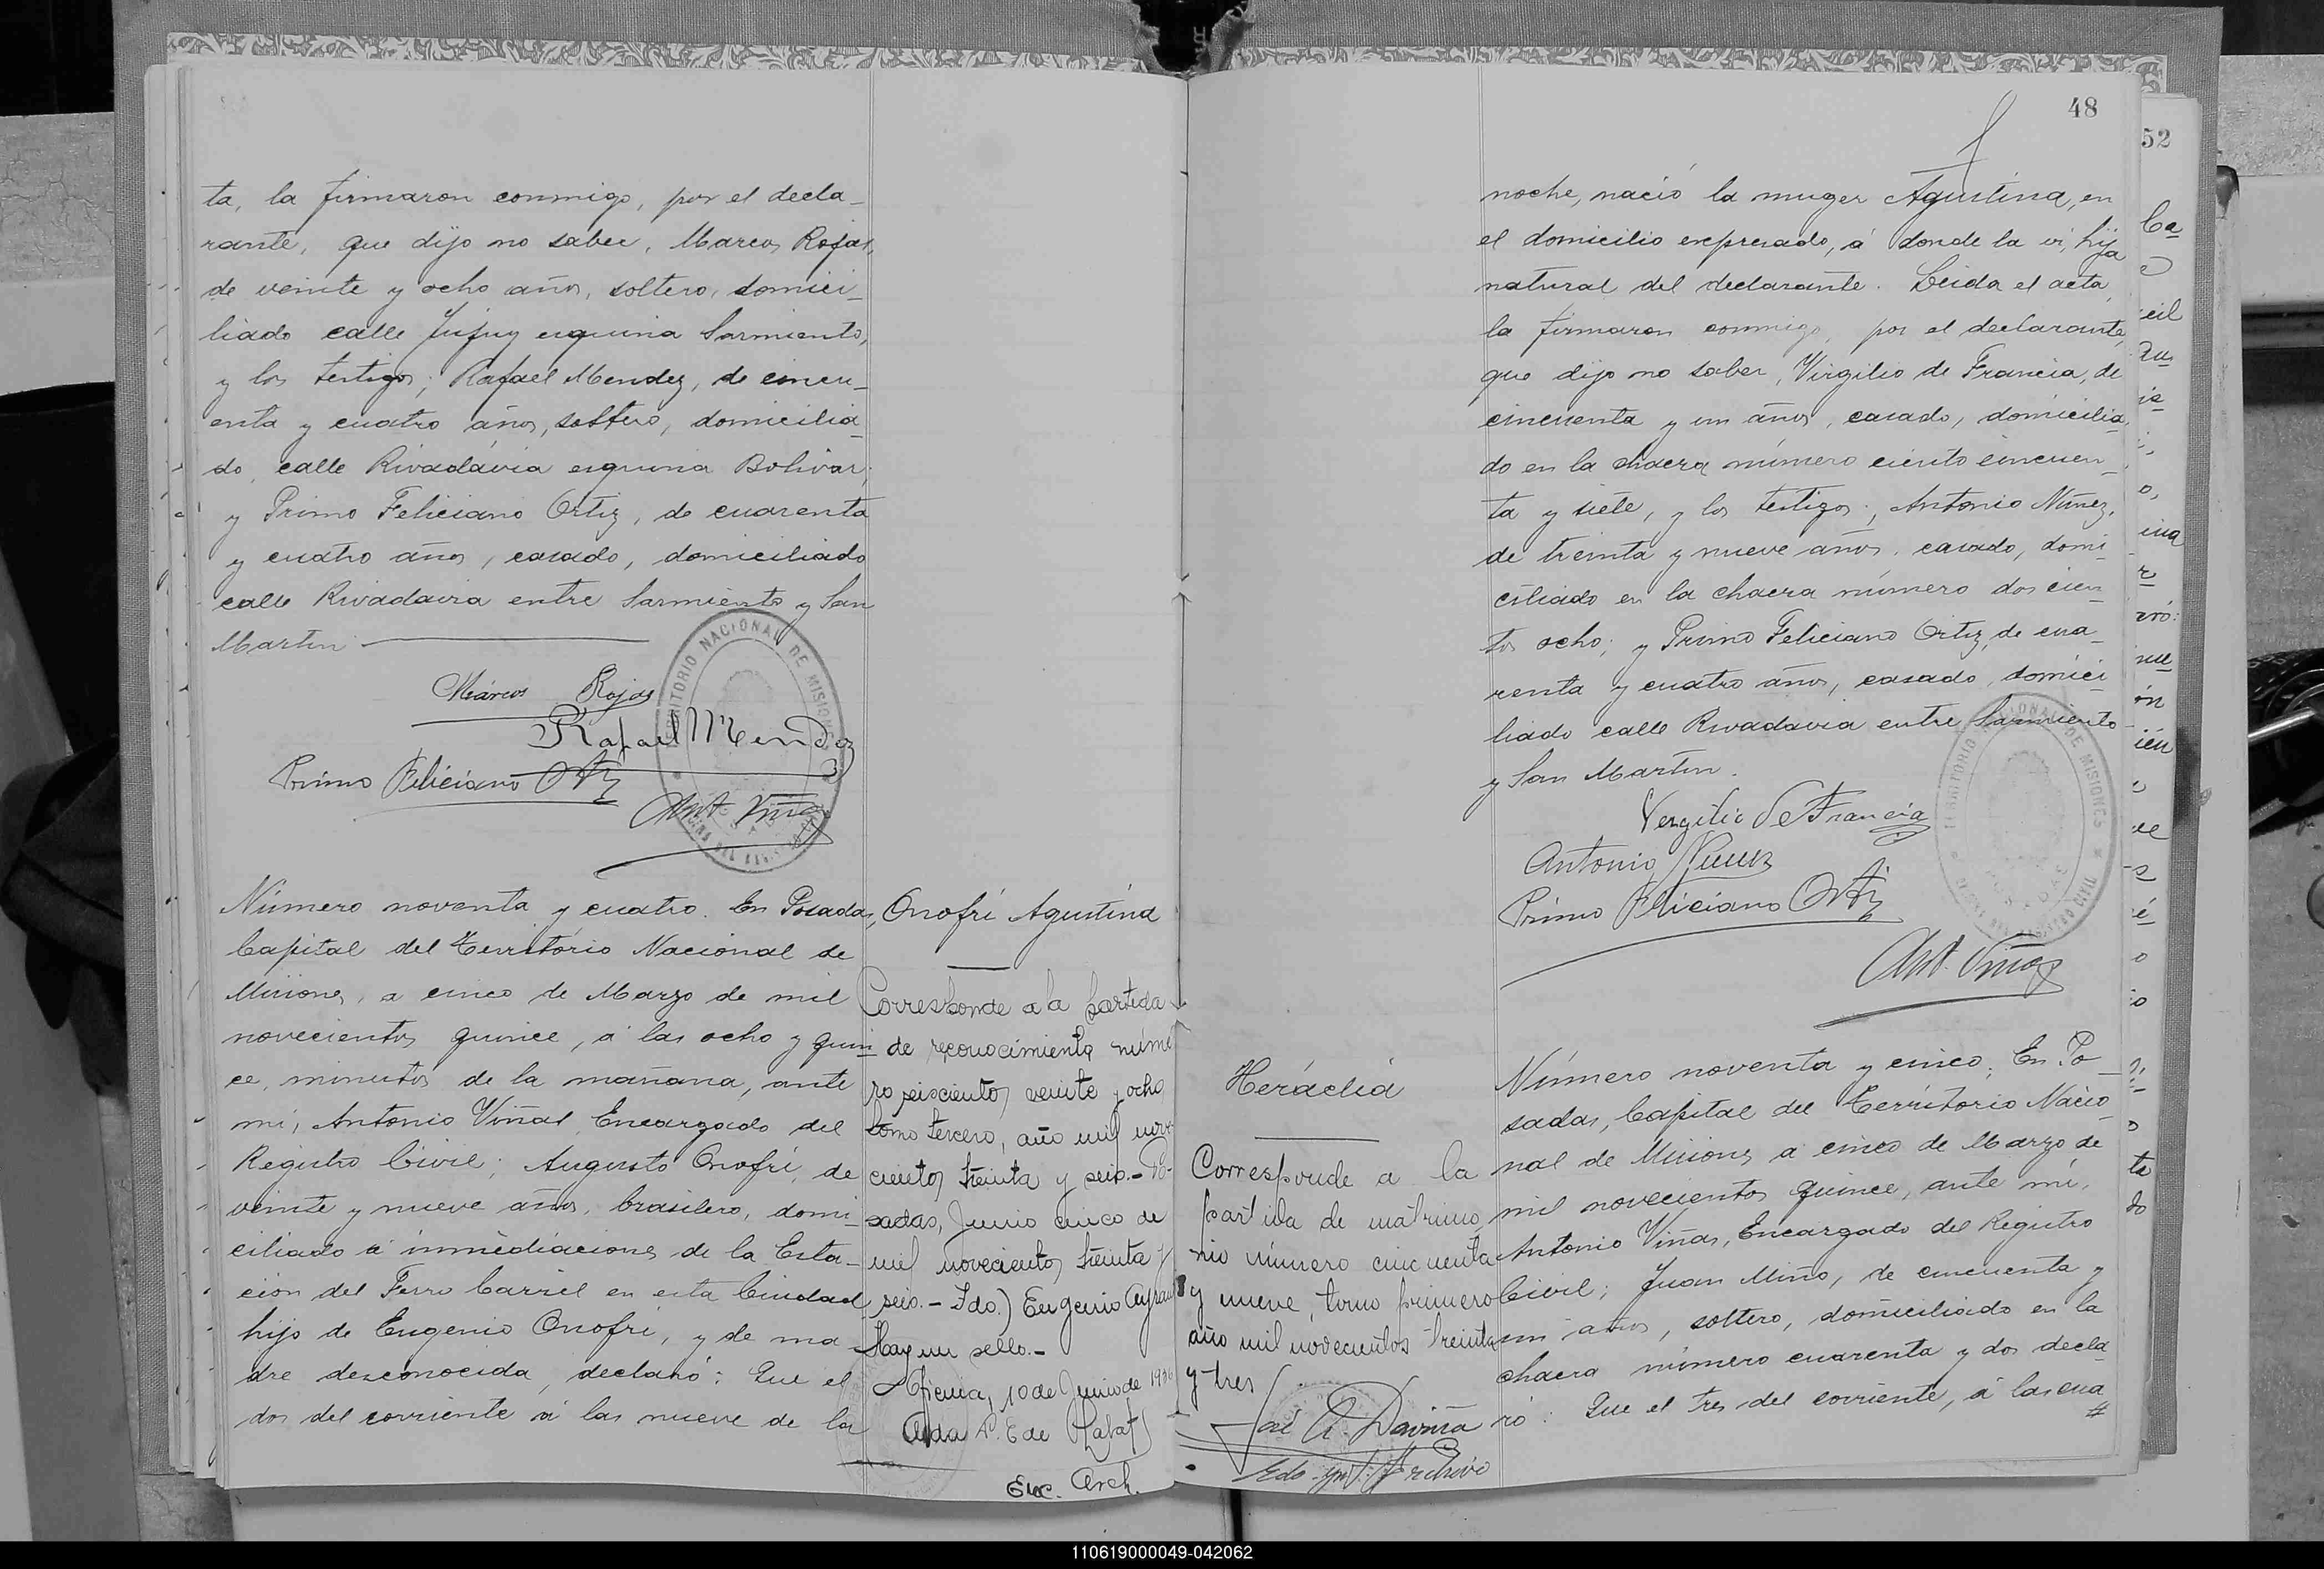 ta, la firmaron conmigo, por el decla-
rante, que dijo no saber, Marcos Rojas,
de veinte y ocho años, soltero, domici-
liado calle Jujuy esquina Sarmiento,
y los testigos; Rafael Mendez, de cincu-
enta y cuatro años, soltero, domicilia-
do, calle Rivadavia esquina Bolivar;
y Primo Feliciano Ortiz, de cuarenta
y cuatro años, casado, domiciliado
calle Rivadavia entre Sarmiento y San
Martin
Márcos Rojas
Rafael Mendez
Primo Feliciano Ortiz
Ant. Viñas
TERRITORIO NACIONAL DE MISIONES
Número noventa y cuatro. En Posadas,
Capital del Territorio Nacional de
Misiones, a cinco de Marzo de mil
novecientos quince, á las ocho y quin-
ce, minutos de la mañana, ante
mi, Antonio Viñas, Encargado del
Registro Civil; Augusto Onofri, de
veinte y nueve años, brasilero, domi-
ciliado á inmediaciones de la Esta-
ción del Ferro Carril en esta Ciudad
hijo de Eugenio Onofri, y de ma-
dre desconocida, declaró: Que el
dos del corriente á las nueve de la
Onofri Agustina
Corresponde a la partida
de reconocimiento núme
ro seiscientos veinte y ocho
tomo tercero, año mil nove
cientos treinta y seis.- Po-
sadas, Junio cinco de
mil novecientos treinta y
seis.- Fdo.) Eugenio
Hay un sello.-
Oficina, 10 de Junio de 1936
Aida P. E de
Enc. Arch.
48
noche, nació la muger Agustina, en
el domicilio expresado, á donde la vi, hija
natural del declarante. Leida el acta,
la firmaron conmigo, por el declarante,
que dijo no saber, Virgilio de Francia, de
cincuenta y un años, casado, domicilia-
do en la chacra número ciento cincuen-
ta y siete, y los testigos; Antonio Núñez,
de treinta y nueve años, casado, domi-
ciliado en la chacra número dos cien-
tos ocho; y Primo Feliciano Ortiz, de cua-
renta y cuatro años, casado, domici-
liado calle Rivadavia entre Sarmiento
y San Martin.
Vergilio De Francia
Antonio Nunez
Primo Feliciano Ortiz
Ant. Viñas
TERRITORIO NACIONAL DE MISIONES
Heráclia
Corresponde a la
partida de matrimo
nio número cincuenta
y nueve, tomo primero
año mil novecientos treinta
y tres
José A. Daviña
Número noventa y cinco; En Po-
sadas, Capital del Territorio Nacio-
nal de Misiones a cinco de Marzo de
mil novecientos quince, ante mí,
Antonio Viñas, Encargado del Registro
Civil; Juan Miño, de cincuenta y
un años, soltero, domiciliado en la
chacra número cuarenta y dos decla-
ró: Que el tres del corriente, á las cua
52
110619000049-042062